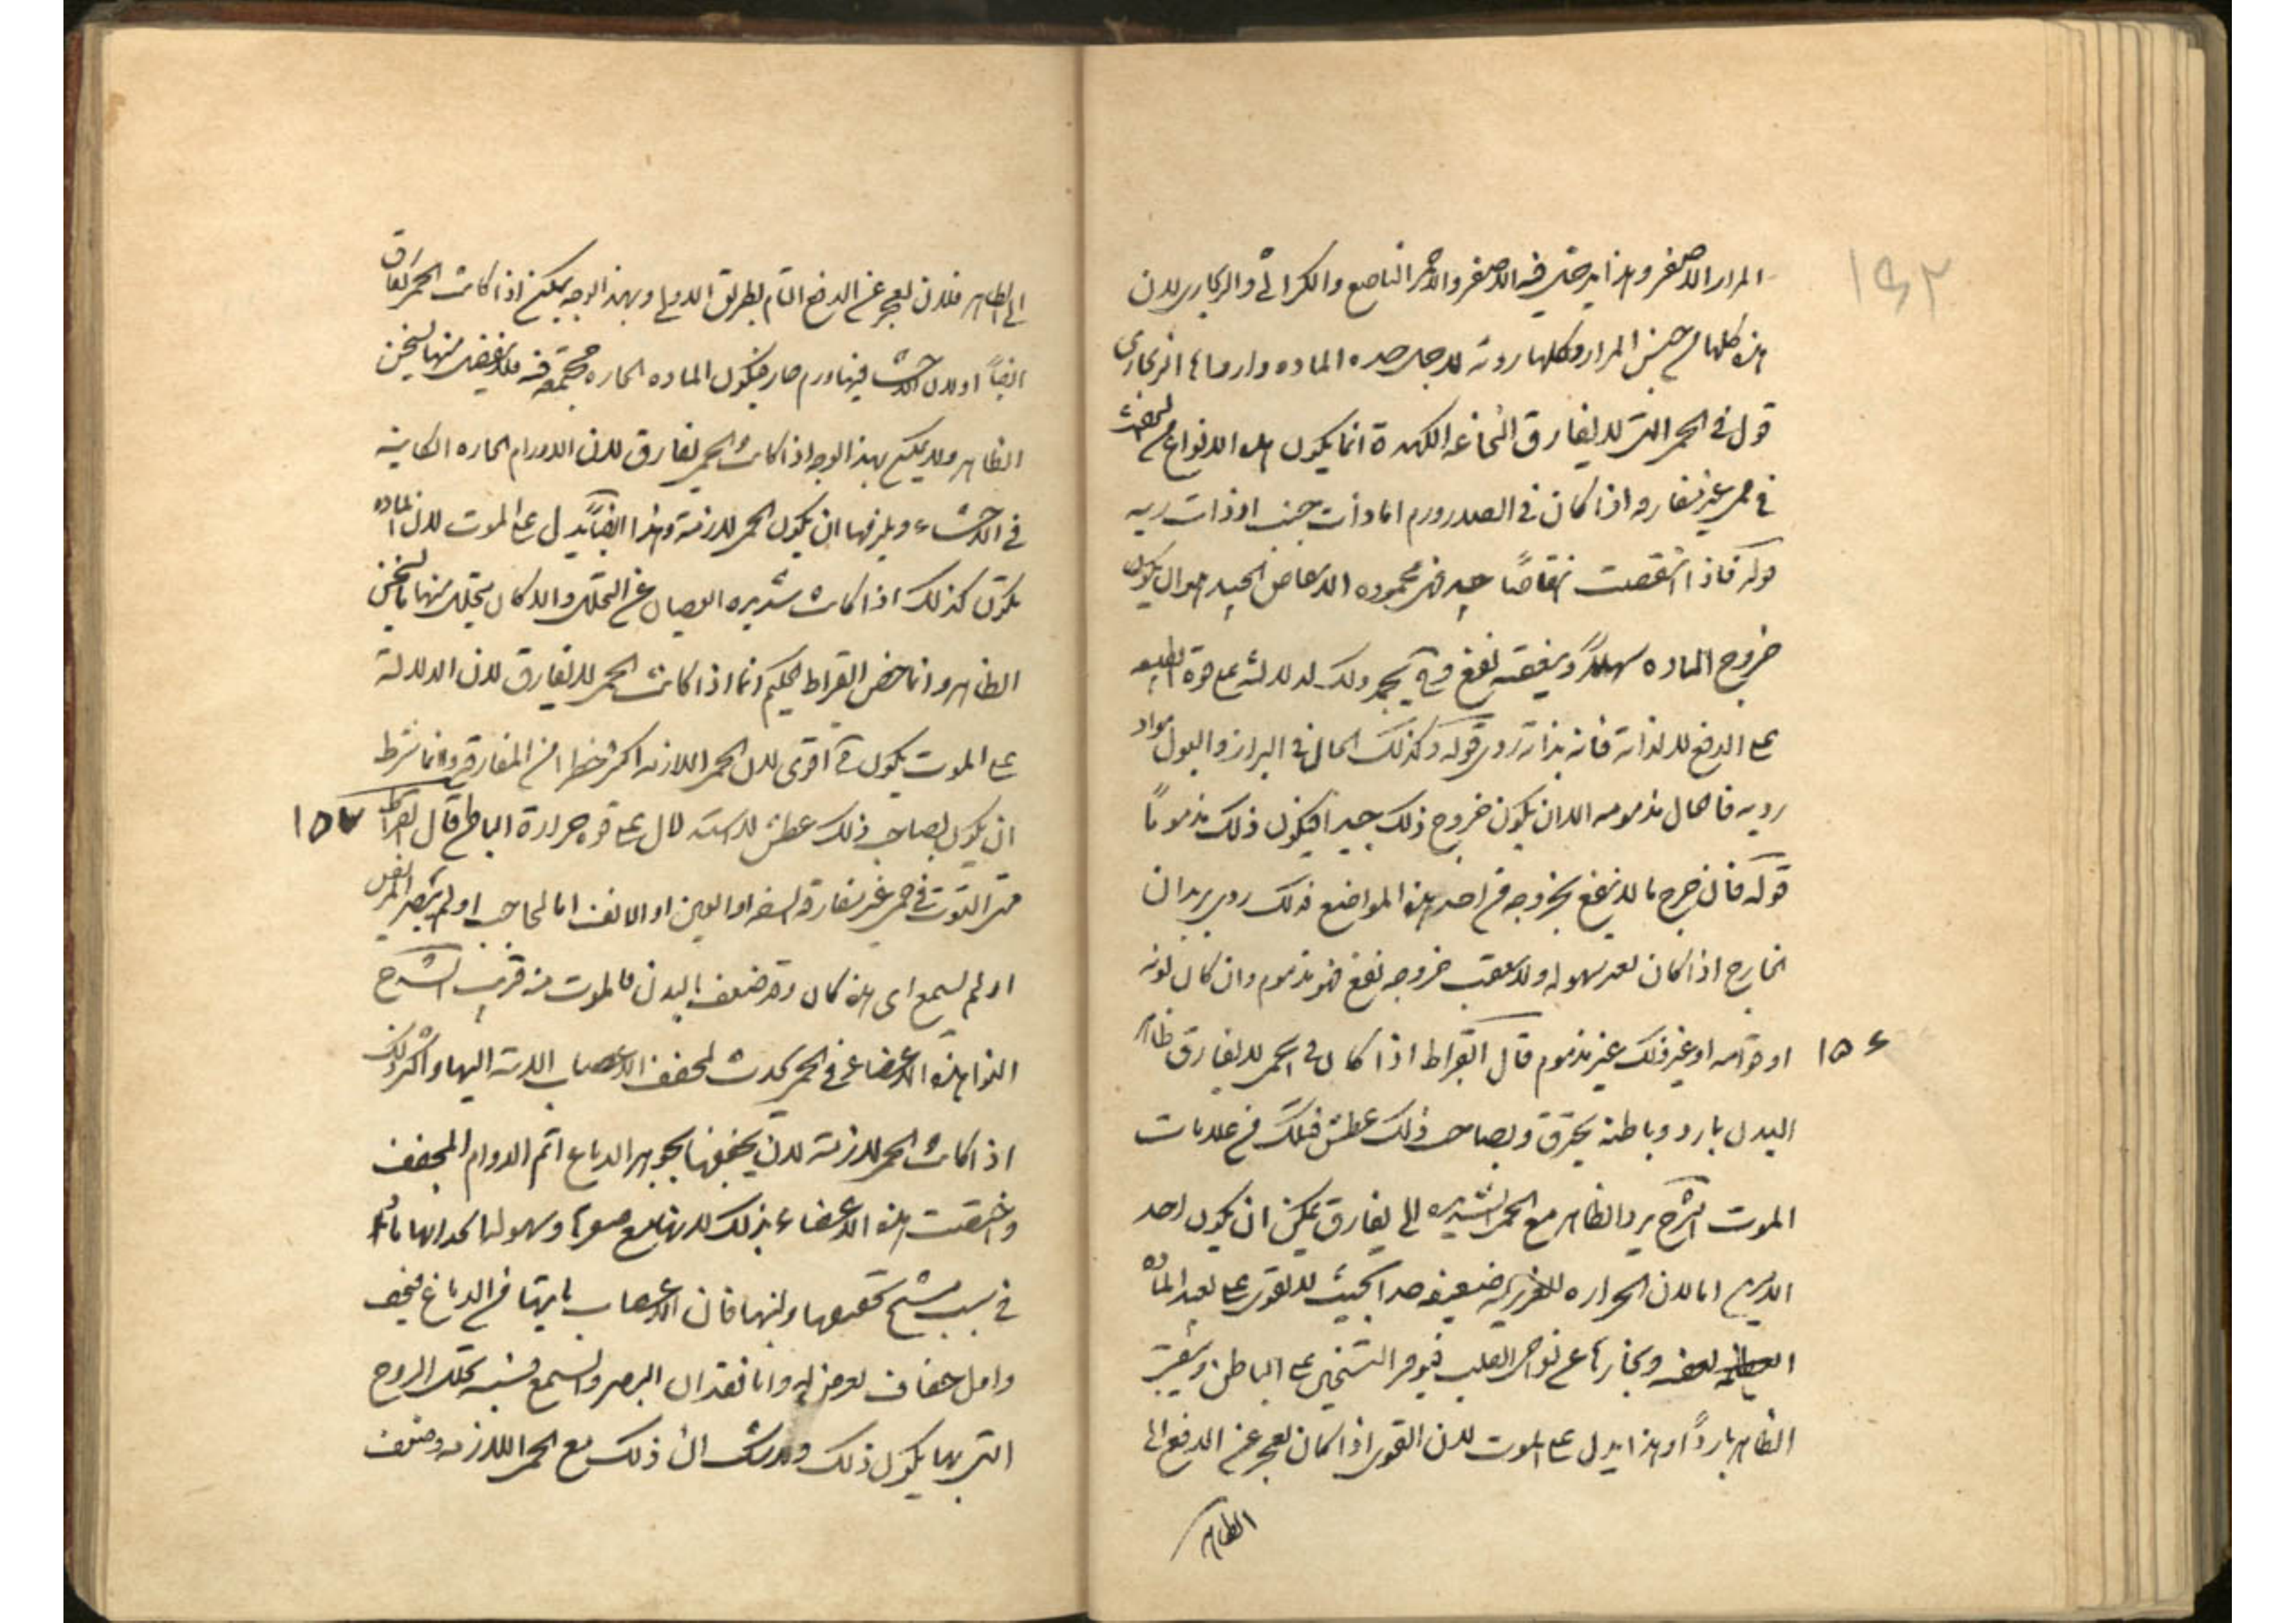 ١٤٢
المرار الاصفر وهذا يدخل فيه الاصفر والاحمر الناصع والكراثي والزنجاري لان
هذه كلها من جنس المرار وكلها ردية لاجل حدة الماده وارداها الزنجاري
قوله في الحمى التي لا يفارق النخاعة الكمدة انما يكون هذه الانواع
في حمى غير مفارقه اذا كان في الصدر ورم اما ذات جنب او ذات ريه
قوله فاذا انتقصت انتقاصًا جيدا فهي محموده الانتقاض الجيد هو ان يكون
خروج الماده سهلا ويعقبه نفع وذلك لدلالته على قوة الطبيعه
على الدفع لا لذاته فانه بذاته ردي قوله وكذلك الحال في البراز والبول مواد
رديه فاحال مذمومه الا ان يكون خروج ذلك جيدا فيكون ذلك مذمومًا
قوله فان خرج ما لا ينفع بخروجه من احد هذه المواضع فذلك ردي يريد ان
الخارج اذا كان بغير سهوله ولا يعقب خروجه نفع فهو مذموم وان كان لونه
او قوامه او غير ذلك غير مذموم قال ابقراط اذا كان في حمى لا يفارق ظاهر
١٥٦
البدن بارد وباطنه يحترق وبصاحب ذلك عطش فتلك من علامات
الموت الشرح برد الظاهر مع الحمى الشديده التي لا يفارق يمكن ان يكون لاحد
امرين اما لان الحراره الغريزيه ضعيفه جدا بحيث لا تقوى على بعد الماده
وبخارها عن نواحي القلب فيوفر التسخين على الباطن ويبقى
الظاهر باردًا وهذا يدل على الموت لان القوى اذا كان يعجز عن الدفع الى
الظاهر
الى الظاهر فلان يعجز عن الدفع التام بطريق الاولى وبهذا الوجه يمكن اذا كانت الحمى يفارق
ايضًا او لان الاحشاء فيها ورم حار فيكون الماده الحاره مجتمعة فيه فلا يفيض منها ليسخن
الظاهر ولا يمكن بهذا الوجه اذا كانت الحمى يفارق لان الاورام الحاره الكاينه
في الاحشاء ويلزمها ان يكون الحمى لازمة وهذا ايضًا يدل على الموت لان الماده
يكون كذلك اذا كانت شديده العصيان عن التحلل والا كان يتحلل منها ما يسخن
الظاهر وانما خص ابقراط الحكم انما اذا كانت الحمى لا يفارق لان الدلالة
على الموت يكون ح اقوى لان الحمى اللازمه اكثر خطرا من المفارقه وانما شرط
ان يكون بصاحب ذلك عطش لانه يدل على قوة حرارة الباطن قال ابقراط
١٥٧
متى التوت في حمى غير مفارقة الشفه او العين او الانف او الحاجب او لم يبصر المريض
او لم يسمع اى هذه كان وقد ضعف البدن فالموت منه قريب الشرح
التوا هذه الاعضا في الحمى يحدث لجفف الاعصاب الآتية اليها واكثر ذلك
اذا كانت الحمى لازمة لان تجفيفها بجوهر الدماغ اتم لدوام المجفف
واختصت هذه الاعضاء بذلك
في سبب تشنج وانها فان الاعصاب ياتيها من الدماغ فيجف
واول جفاف يعرض له واما فقدان البصر والسمع فسببه تحلل الروح
التي بها يكون ذلك مع الحمى اللازمه وضعف